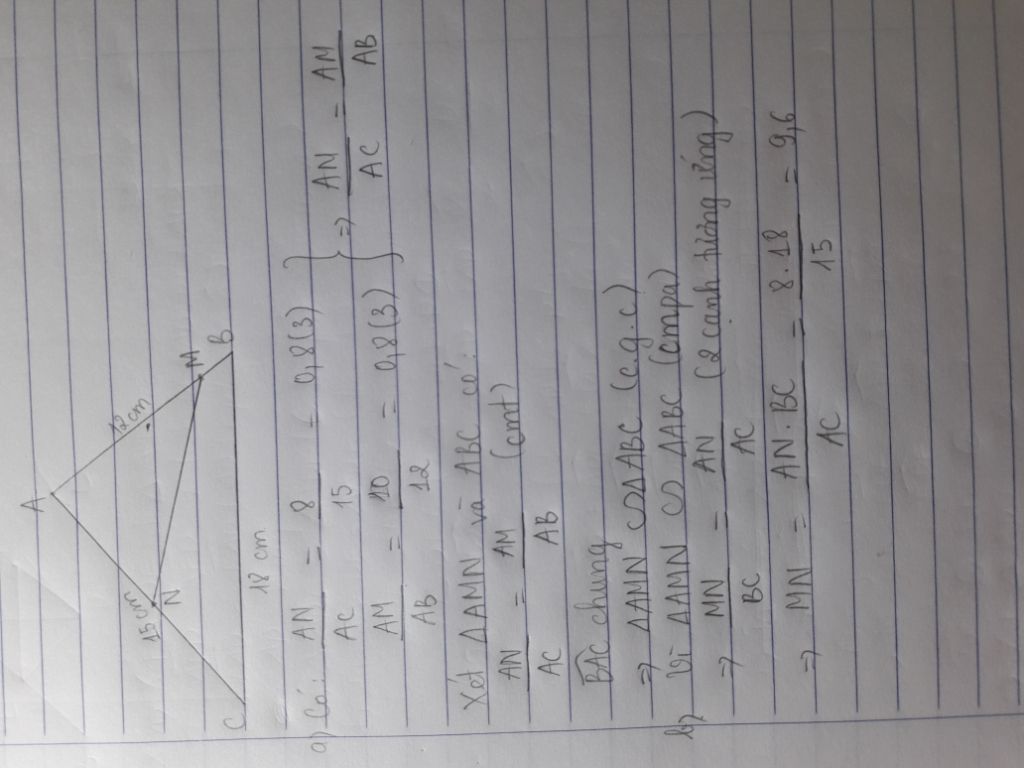 A
12 cm
15 cm
N
M
B
C
18 cm
a) Có: AN/AC = 8/15 = 0,8(3)
AM/AB = 10/12 = 0,8(3) } => AN/AC = AM/AB
Xét ΔAMN và ABC có:
AN/AC = AM/AB (cmt)
BAC chung
=> ΔAMN ∽ ΔABC (c.g.c)
b) Vì ΔAMN ∽ ΔABC (cmpa)
=> MN/BC = AN/AC (2 cạnh tương ứng)
=> MN = AN.BC/AC = 8.18/15 = 9,6